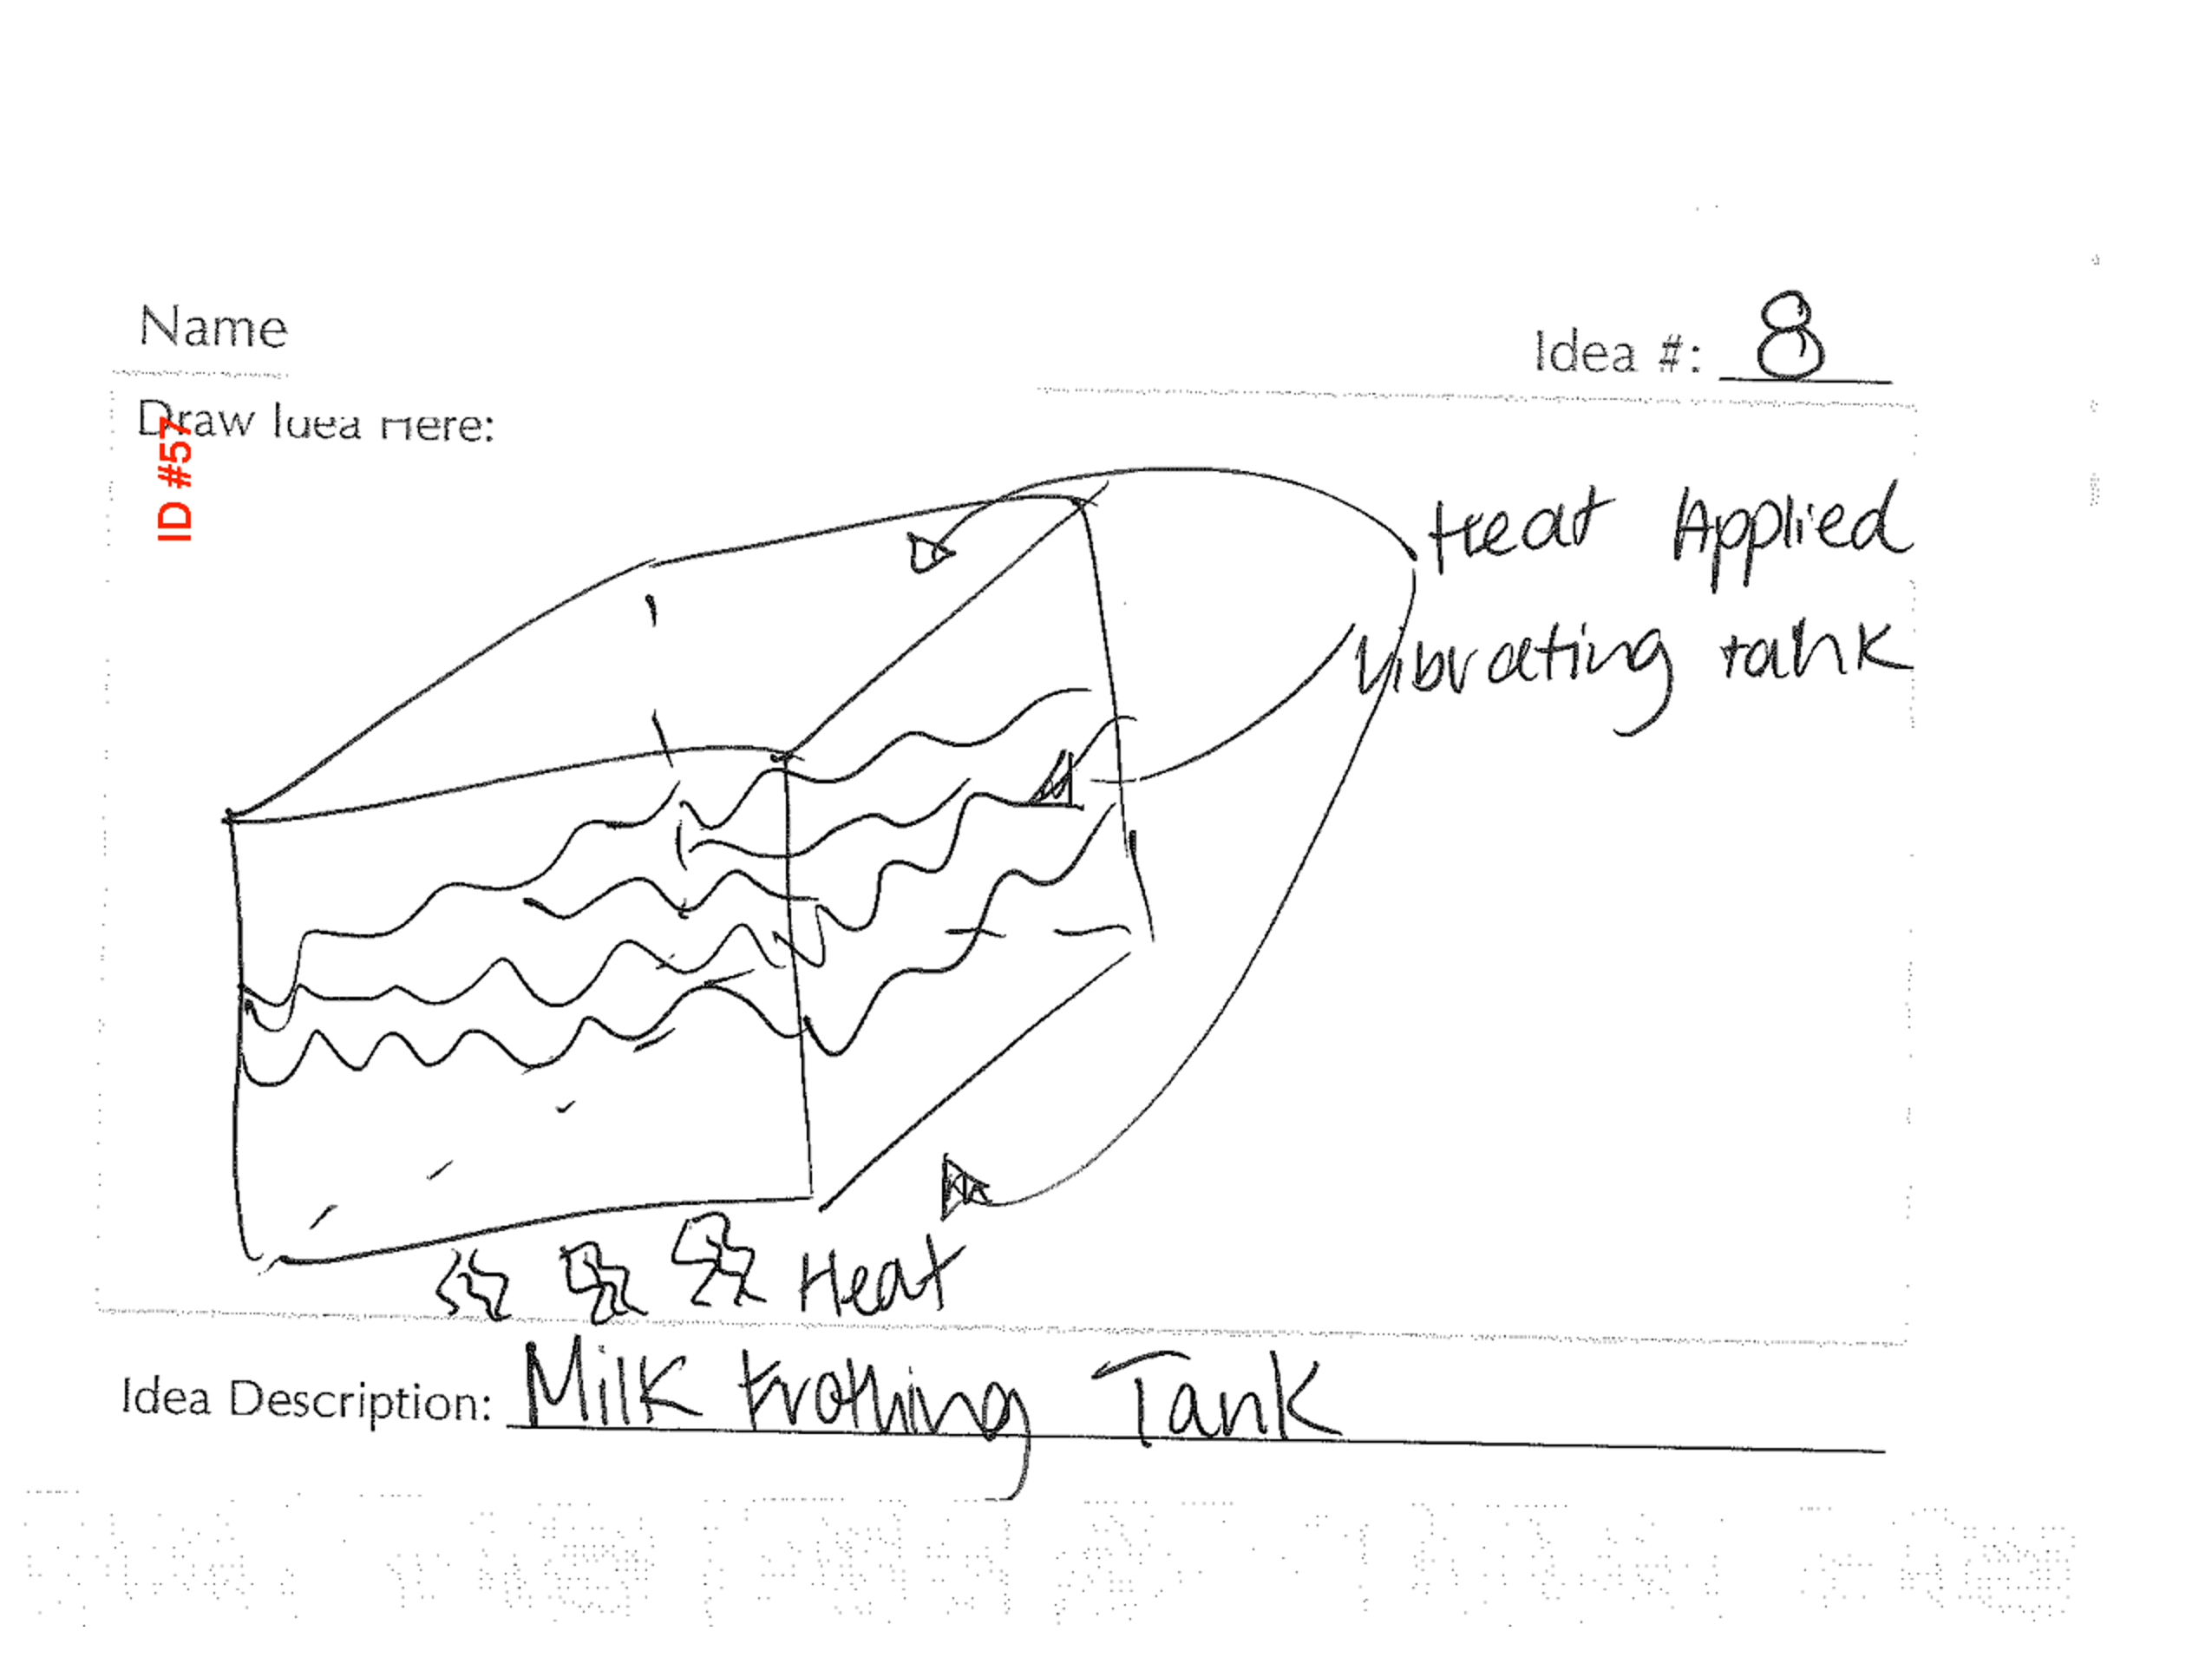 Name
Idea #: 8
Draw Idea Here:
ID #57
Heat Applied
Vibrating tank
Heat
Idea Description: Milk Frothing Tank